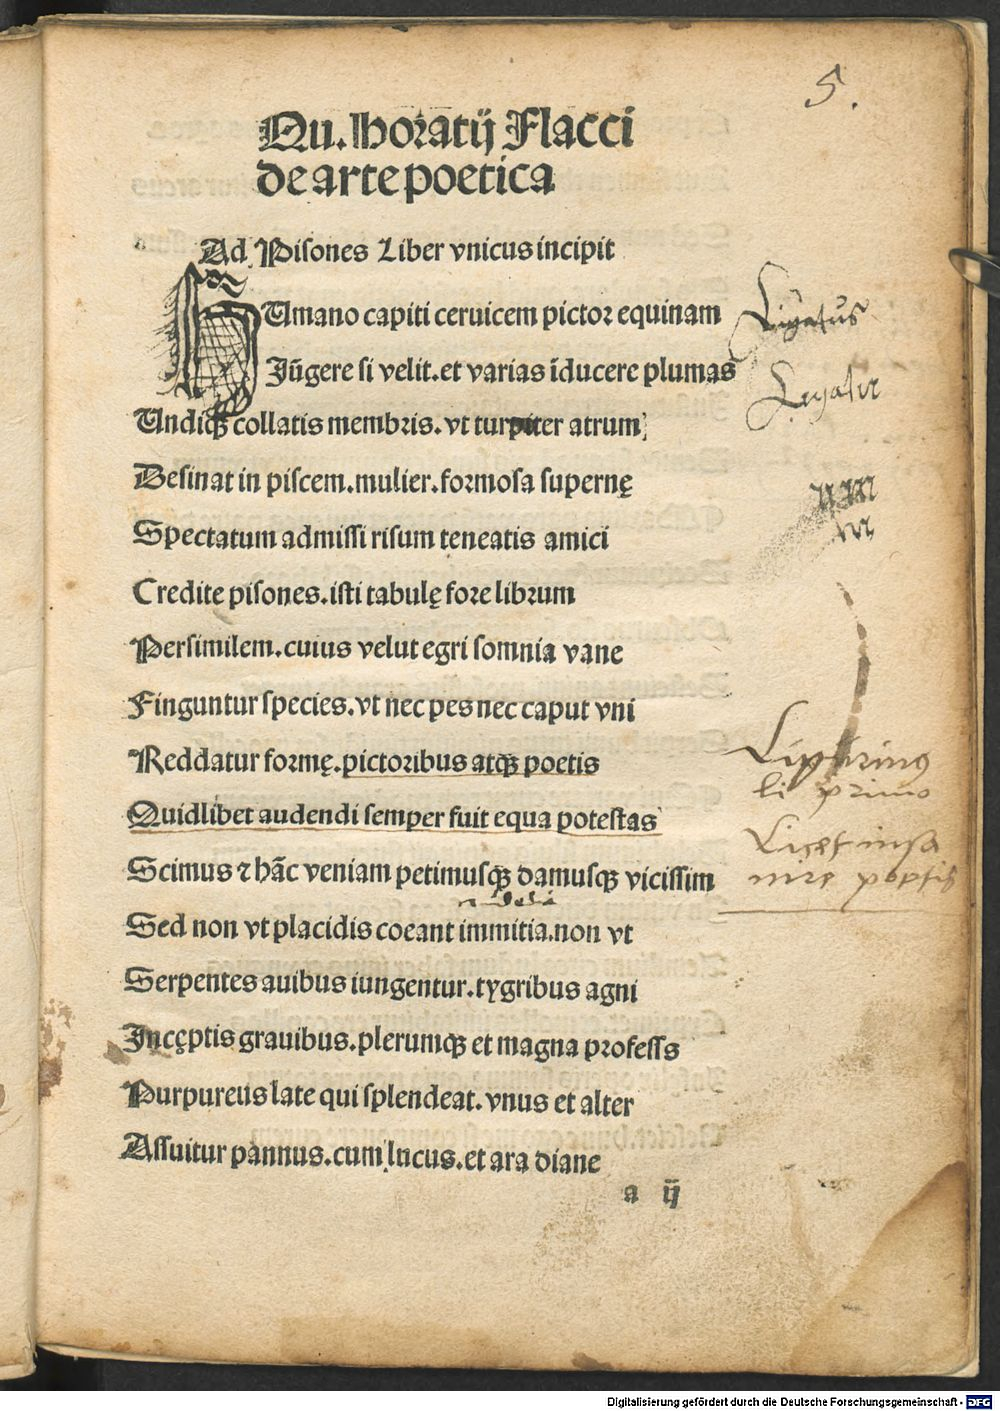 5.
Qu. Horatij Flacci
de arte poetica
Ad Pisones Liber vnicus incipit
hUmano capiti ceruicem pictor equinam
Iũgere si velit. et varias īducere plumas
Undiqꝫ collatis membris. vt turpiter atrum
Desinat in piscem. mulier. formosa supernę
Spectatum admissi risum teneatis amici
Credite pisones. isti tabulę fore librum
Persimilem. cuius velut egri somnia vane
Finguntur species. vt nec pes nec caput vni
Reddatur formę. pictoribus atqꝫ poetis
Quidlibet audendi semper fuit equa potestas
Scimus ⁊ hãc veniam petimusqꝫ damusqꝫ vicissim
Sed non vt placidis coeant immitia. non vt
Serpentes auibus iungentur. tygribus agni
Incęptis grauibus. plerumqꝫ et magna professs
Purpureus late qui splendeat. vnus et alter
Assuitur pannus. cum lucus. et ara diane
a ij
Ligatus
li primo
Licet insa
nire
Digitalisierung gefördert durch die Deutsche Forschungsgemeinschaft - DFG